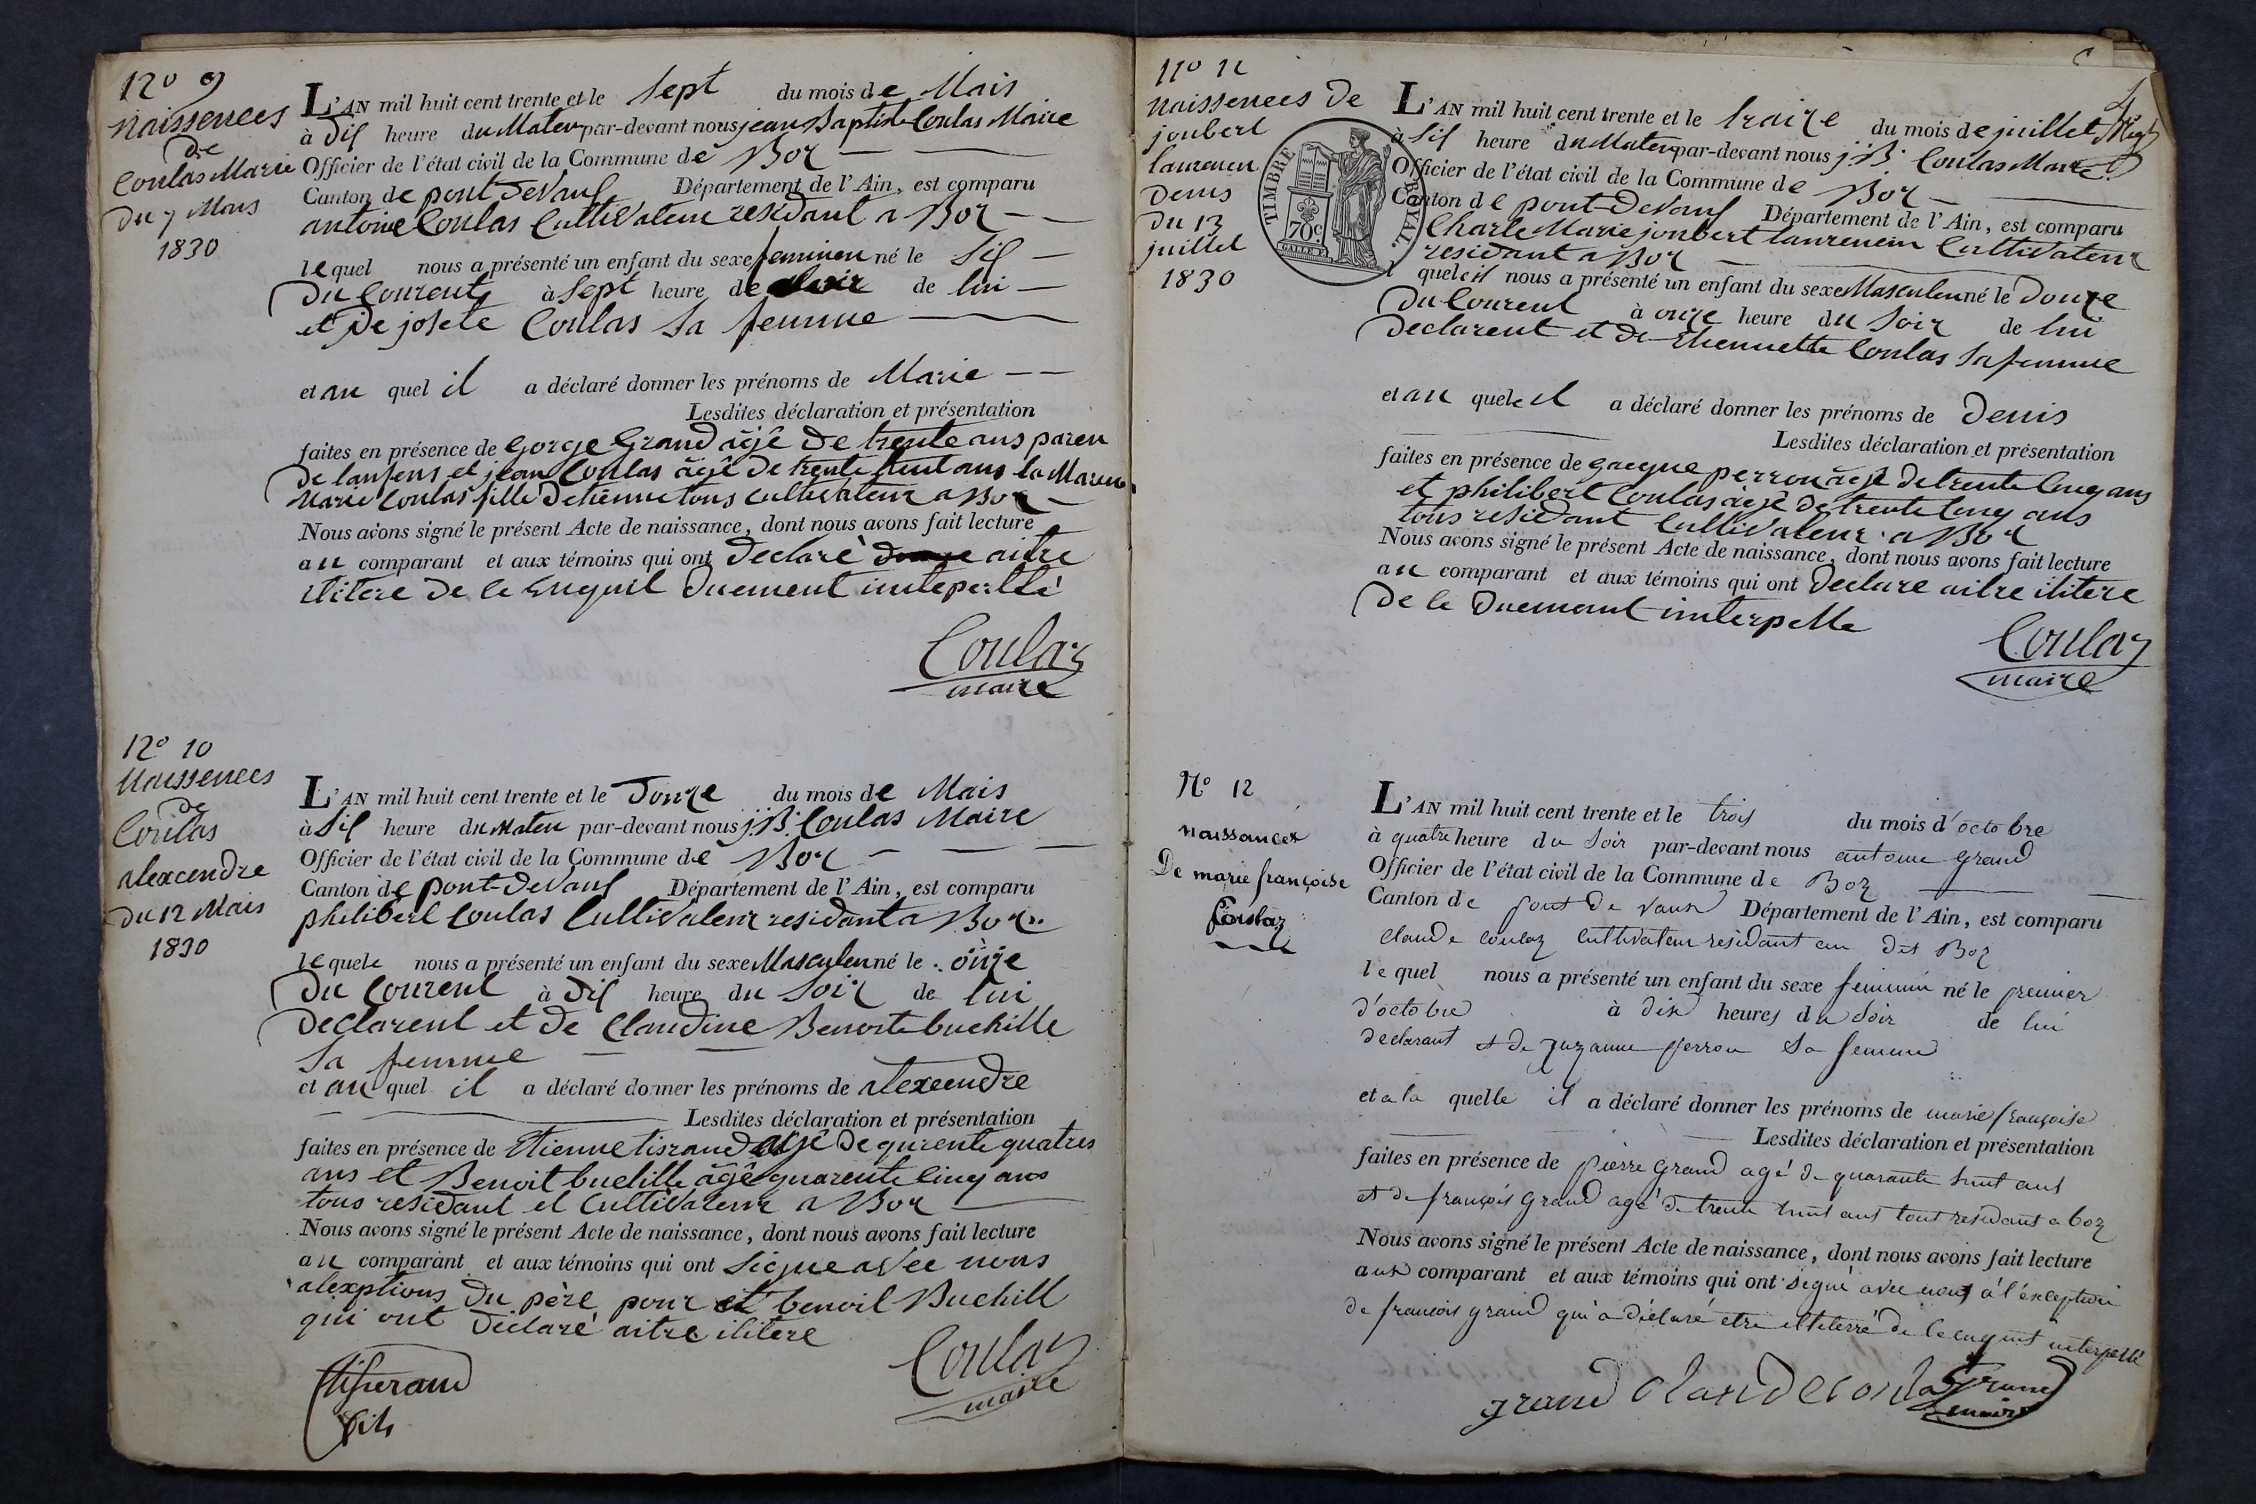 No 9
Naissences
de
Coulas Marie
du 7 Mais
1830
L'AN mil huit cent trente et le Sept du mois de Mais
à Dis heure du Maten par-devant nous jean Baptiste Coulas Maire
Officier de l'état civil de la Commune de Boz
Canton de pont Devaus Département de l'Ain, est comparu
antoine Coulas Cultivateur residant a Boz
lequel nous a présenté un enfant du sexe feminen né le Sis
Du Courent à Sept heure de Soir de lui
et De josete Coulas Sa femme
et au quel il a déclaré donner les prénoms de Marie
Lesdites déclaration et présentation
faites en présence de Gorge Grand âgê De trente ans paren
De lanfens et jean Coulas âgê de trente huit ans la Marene
Marie Coulas fille Detienne tous cultivateur a Boz
Nous avons signé le présent Acte de naissance, dont nous avons fait lecture
au comparant et aux témoins qui ont declaré aitre
ilitere De ce Enquil Duement inteperllé
Coulaz
maire
No 10
Naissences
de
Coulas
alexcendre
du 12 Mais
1830
L'AN mil huit cent trente et le Douze du mois de Mais
à Sis heure du Maten par-devant nous j.B. Coulas Maire
Officier de l'état civil de la Commune de Boz
Canton de pont-Devaus Département de l'Ain, est comparu
philibert Coulas Cultivateur residant a Boz
lequele nous a présenté un enfant du sexe Masculen né le onze
Du Courent à Dis heure du Soir de lui
Declarent et de Claudine Benoite buchille
Sa femme
et au quel il a déclaré donner les prénoms de alexcendre
Lesdites déclaration et présentation
faites en présence de Etienne tisrand âgê De qurente quatres
ans et Benoit buchille âgê quarente Cinq ans
tous residant et Cultivateur a Boz
Nous avons signé le présent Acte de naissance, dont nous avons fait lecture
au comparant et aux témoins qui ont Signe avec nous
alexptions Du père pour et benoit Buchill
qui ont Déclaré aitre ilitere
tisserand
fils
Coulaz
maire
No 11
Naissences De
joubert
laurencen
Denis
Du 13
juillet
1830
TIMBRE ROYAL.
70c
L'AN mil huit cent trente et le traize du mois de juillet
à Sis heure du Maten par-devant nous j.B. Coulas Maire
Officier de l'état civil de la Commune de Boz
Canton de pont-Devaus Département de l'Ain, est comparu
Charle Marie joubert laurencin Cultivateur
residant a Boz
quele il nous a présenté un enfant du sexe Masculen né le Douze
Du Courent à onze heure du Soir de lui
Declarent et de Ettiennette Coulas Sa femme
et au quele il a déclaré donner les prénoms de Denis
Lesdites déclaration et présentation
faites en présence de gacque perron âgê de trente Cinq ans
et philibert Coulas âgê de trente Cinq ans
tous residant Cultivateur a Boz
Nous avons signé le présent Acte de naissance, dont nous avons fait lecture
au comparant et aux témoins qui ont Declare aitre ilitere
De le Duemant imterpelle
Coulaz
maire
No 12
naissances
De marie françoise
Coulaz
L'AN mil huit cent trente et le trois du mois d'octobre
à quatre heure du Soir par-devant nous antoine grand
Officier de l'état civil de la Commune de Boz
Canton de pont de vaux Département de l'Ain, est comparu
Claude coulaz Cultivateur residant au dit Boz
lequel nous a présenté un enfant du sexe feminin né le premier
d'octobre à dix heures du Soir de lui
déclarant et de Suzanne perron Sa femme
et a la quelle il a déclaré donner les prénoms de marie françoise
Lesdites déclaration et présentation
faites en présence de pierre Grand agé de quarante huit ans
et de françois grand agé de trente huit ans tout residant a boz
Nous avons signé le présent Acte de naissance, dont nous avons fait lecture
aux comparant et aux témoins qui ont signé avec nous à l'exception
de francois grand qui a déclaré etre illeterré de ce enquis interpellé
grand Claude Coula Grand
maire